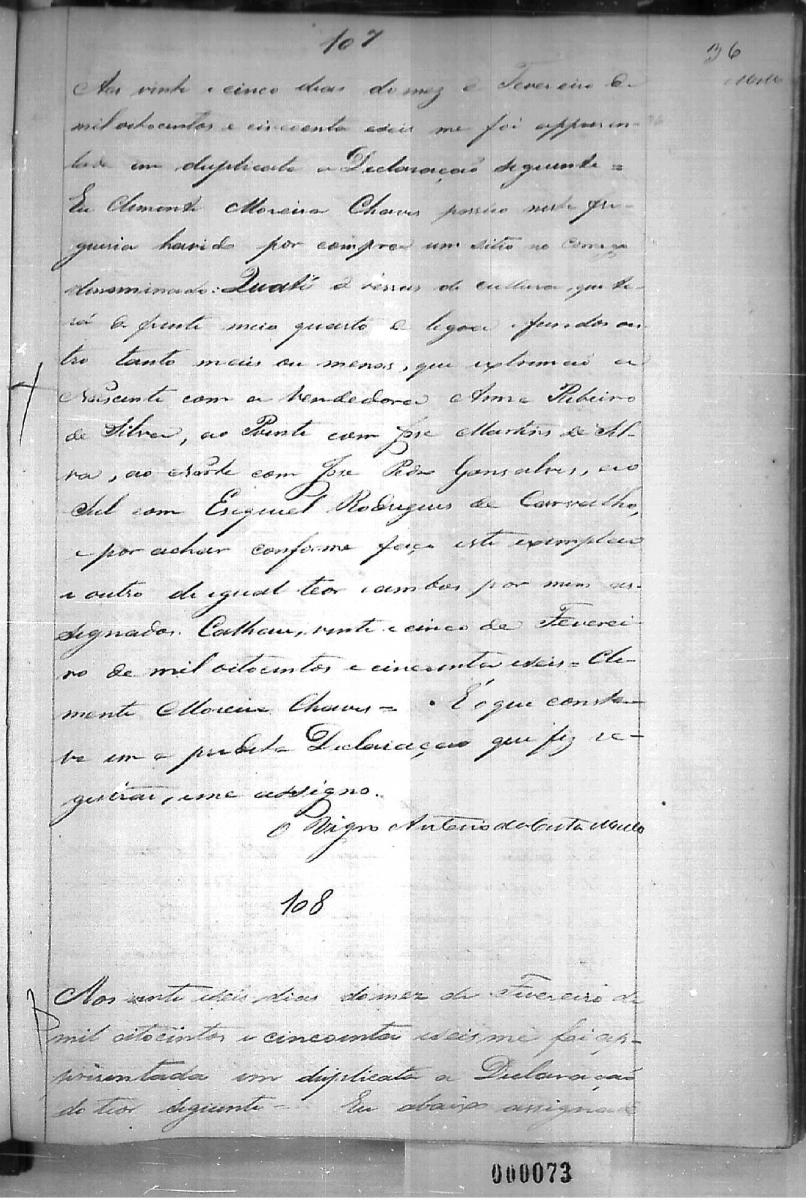 107
36
Mello
Aos vinte e cinco dias do mez de Fevereiro de
mil oitocentos e cincoenta e seis me foi apprezen-
tada em duplicata a Declaração seguinte =
Eu Clemente Moreira Chaves possúo nesta fre-
guesia havido por compra um sitio no corrego
denominado: Quatí de terras de cultura, que te-
rá de frente meio quarto de legoa e fundos ou-
tro tanto mais ou menos, que extremão ao
Nascente com a vendedora Anna Ribeiro
da Silva, ao Poente com José Martins da Sil-
va, ao Norte com José Pedro Gonsalves, ao
Sul com Esequiel Rodrigues de Carvalho,
e por achar conforme faço este exemplar
e outro de igual teor e ambos por mim as-
signados. Calhau, vinte e cinco de Feverei-
ro de mil oitocentos e cincoenta e seis = Cle-
mente Moreira Chaves = É o que consta-
va em a predita Declaração que fiz re-
gistrar, e me assigno.
O Vigro Antonio da Costa Mello
108
Aos vinte e seis dias do mez de Fevereiro de
mil oitocintos e cincoenta e seis me foi ap-
prisentada em duplicata a Declaração
do teor seguinte = Eu abaixo assignado
000073